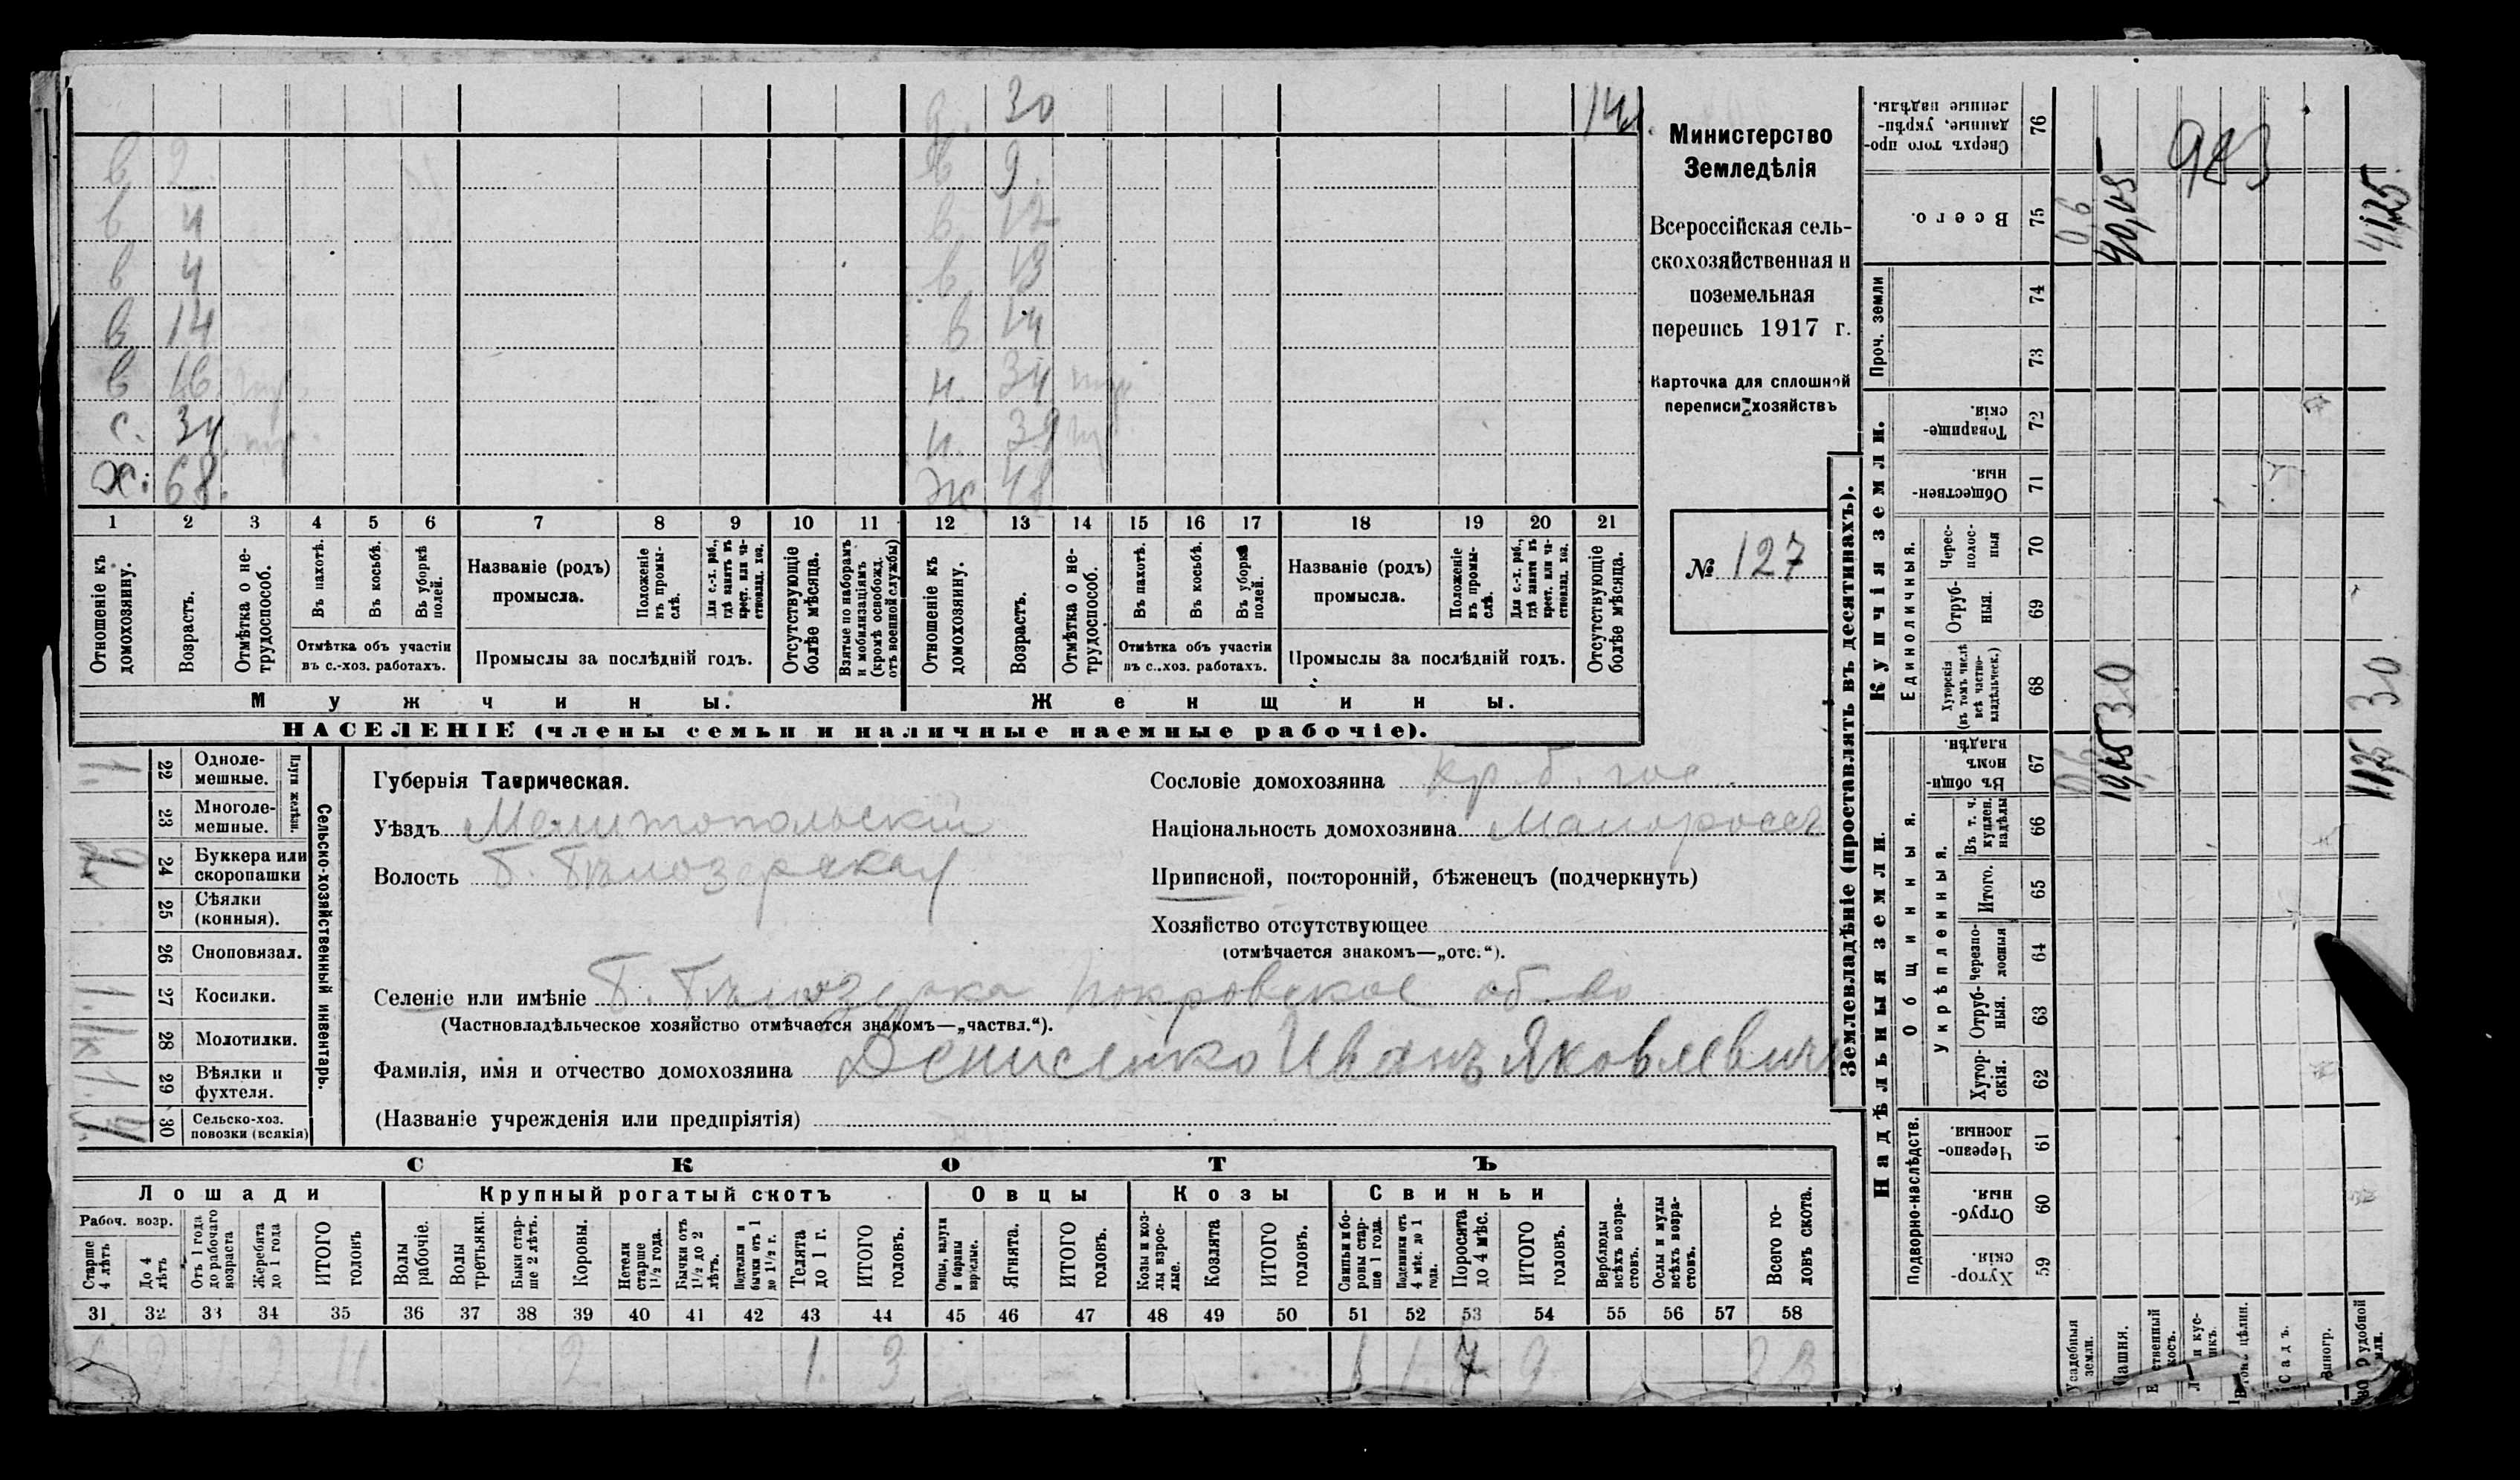 д. 30 14
в 2 в 9.
в 4 в 12
в 4 в 13
в 14 в 14
в 16 н. 34
с. 34 н. 39
х: 68. ж 48
1 2 3 4 5 6 7 8 9 10 11 12 13 14 15 16 17 18 19 20 21
Отношеніе къ домохозяину.
Возрастъ.
Отмѣтка о не-трудоспособ.
Въ пахотѣ.
Въ косьбѣ.
Въ уборкѣ полей.
Отмѣтка объ участіи въ с.-хоз. работахъ.
Названіе (родъ) промысла.
Положеніе въ промы-слѣ.
Для с.-х. раб., гдѣ занятъ въ крест. или ча-стновлад. хоз.
Промыслы за послѣдній годъ.
Отсутствующіе болѣе мѣсяца.
Взятые по наборамъ и мобилизаціямъ (кромѣ освобожд. отъ военной службы)
Отношеніе къ домохозяину.
Возрастъ.
Отмѣтка о не-трудоспособ.
Въ пахотѣ.
Въ косьбѣ.
Въ уборкѣ полей.
Отмѣтка объ участіи въ с.-хоз. работахъ.
Названіе (родъ) промысла.
Положеніе въ промы-слѣ.
Для с.-х. раб., гдѣ занята въ крест. или ча-стновлад. хоз.
Промыслы за послѣдній годъ.
Отсутствующіе болѣе мѣсяца.
Мужчины. Женщины.
НАСЕЛЕНІЕ (члены семьи и наличные наемные рабочіе).
Министерство
Земледѣлія
Всероссійская сель-
скохозяйственная и
поземельная
перепись 1917 г.
Карточка для сплошной
переписи хозяйствъ
№ 127
Сельско-хозяйственный инвентарь.
Плуги желѣзн.
1. 22 Одноле-мешные.
23 Многоле-мешные.
24 Буккера или скоропашки
25 Сѣялки (конныя).
26 Сноповязал.
1. 27 Косилки.
28 Молотилки.
1. 29 Вѣялки и фухтеля.
30 Сельско-хоз. повозки (всякія)
Губернія Таврическая.
Уѣздъ Мелитопольскій
Волость Б. Бѣлозерская
Сословіе домохозяина кр. б. гос.
Національность домохозяина Малороссъ
Приписной, посторонній, бѣженецъ (подчеркнуть)
Хозяйство отсутствующее
(отмѣчается знакомъ—„отс.“).
Селеніе или имѣніе Б. Бѣлозерка Покровское об-во
(Частновладѣльческое хозяйство отмѣчается знакомъ—„частвл.“).
Фамилія, имя и отчество домохозяина Денисенко Иванъ Яковлевичъ
(Названіе учрежденія или предпріятія)
СКОТЪ
Лошади Крупный рогатый скотъ Овцы Козы Свиньи
Рабоч. возр.
Старше 4 лѣтъ
До 4 лѣтъ
Отъ 1 года до рабочаго возраста
Жеребята до 1 года
ИТОГО головъ
Волы рабочіе.
Волы третьяки.
Быки стар-ше 2 лѣтъ.
Коровы.
Нетели старше 1½ года.
Бычки отъ 1½ до 2 лѣтъ.
Подтелки и бычки отъ 1 до 1½ г.
Телята до 1 г.
ИТОГО головъ.
Овцы, валухи и бараны взрослые.
Ягнята.
ИТОГО головъ.
Козы и коз-лы взрос-лые.
Козлята
ИТОГО головъ.
Свиньи и бо-ровы стар-ше 1 года.
Подсвинки отъ 4 мѣс. до 1 года.
Поросята до 4 мѣс.
ИТОГО головъ.
Верблюды всѣхъ возра-стовъ.
Ослы и мулы всѣхъ возра-стовъ.
Всего го-ловъ скота.
31 32 33 34 35 36 37 38 39 40 41 42 43 44 45 46 47 48 49 50 51 52 53 54 55 56 57 58
2 2 11 2 1. 3 1 1. 7 9 23
Землевладѣніе (проставлять въ десятинахъ).
Надѣльныя земли. Купчія земли.
Проч. земли
Общинныя.
Укрѣпленныя.
Подворно-наслѣдств.
Единоличныя.
Сверхъ того про-данные, укрѣп-ленные надѣлы. 76
Всего. 75
74
73
Товарище-скія. 72
Обществен-ныя. 71
Черес-полос-ныя 70
Отруб-ныя. 69
Хуторскія (въ томъ числѣ всѣ частно-владѣльческ.) 68
Въ общин-номъ владѣн. 67
Въ т. ч. куплен. надѣлы 66
Итого. 65
Черезпо-лосныя 64
Отруб-ныя. 63
Хутор-скія. 62
Черезпо-лосныя. 61
Отруб-ныя. 60
Хутор-скія. 59
Усадебныя земли.
Пашня.
Садъ.
Виногр.
06 40,05 983 41,25
30 30
06 11,25